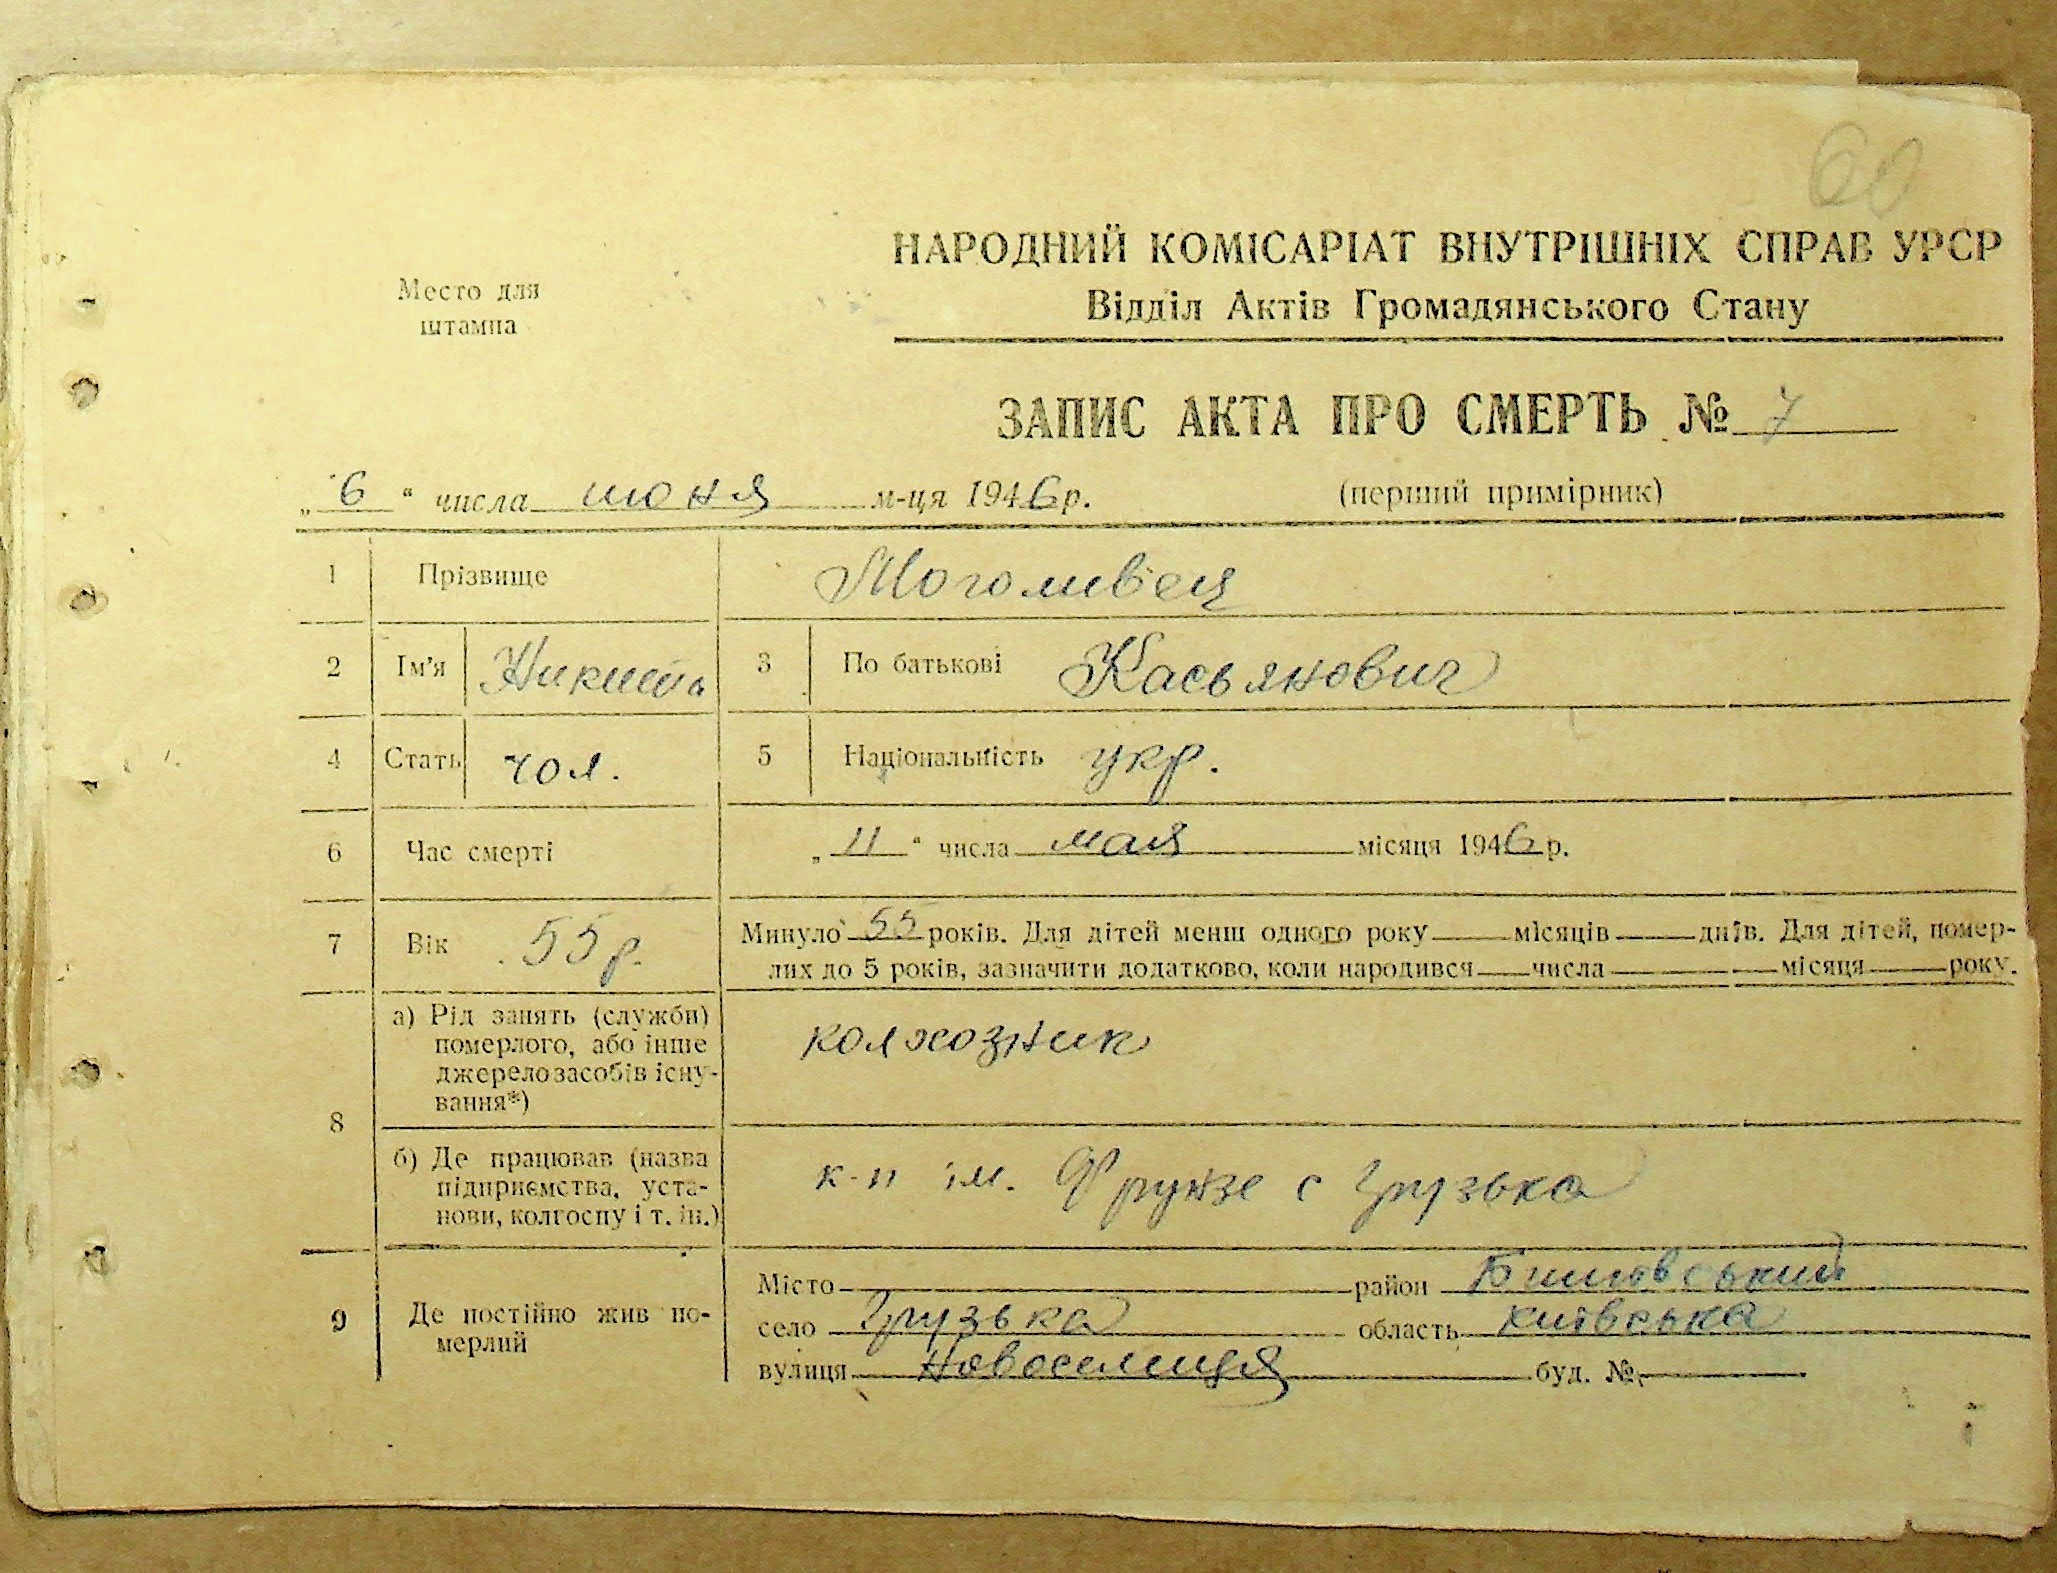 60
НАРОДНИЙ КОМІСАРІАТ ВНУТРІШНІХ СПРАВ УРСР
Место для штампа
Відділ Актів Громадянського Стану
ЗАПИС АКТА ПРО СМЕРТЬ № 7
„6“ числа июня м-ця 1946 р. (перший примірник)
1 Прізвище Моголивец
2 Ім'я Никита 3 По батькові Касьянович
4 Стать чол. 5 Національність укр.
6 Час смерті „11“ числа мая місяця 1946 р.
7 Вік 55 р. Минуло 55 років. Для дітей менш одного року місяців днів. Для дітей, помер-
лих до 5 років, зазначити додатково, коли народився числа місяця року.
8 а) Рід занять (служби) померлого, або інше джерело засобів існу-вання*) колхозник
б) Де працював (назва підприємства, уста-нови, колгоспу і т. ін.) к-п ім. Фрунзе с Грузька
9 Де постійно жив по-мерлий
Місто район Бишівський
село Грузька область київська
вулиця Новоселиця буд. №